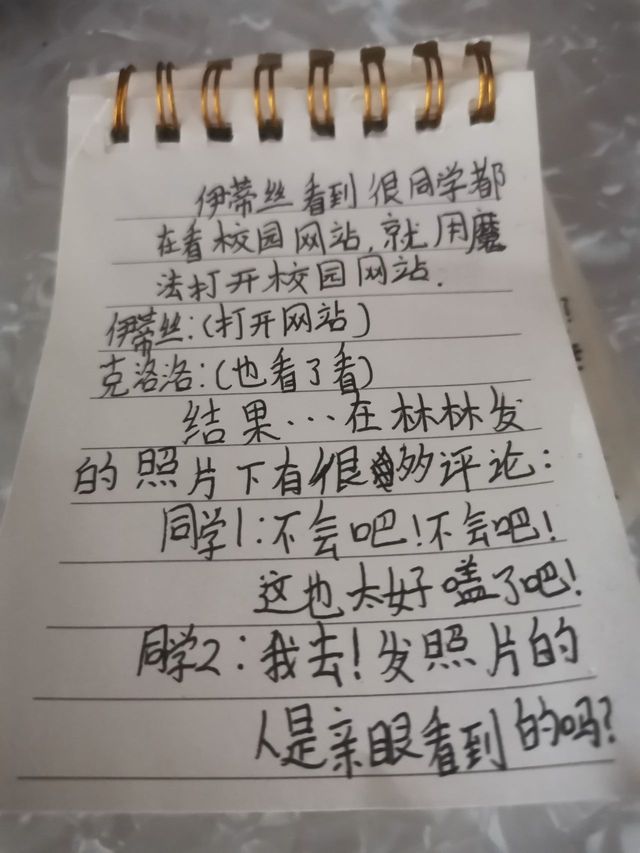 伊蒂丝看到很同学都
在看校园网站,就用魔
法打开校园网站.
伊蒂丝:(打开网站)
克洛洛:(也看了看)
结果…在林林发
的照片下有很多评论:
同学1:不会吧!不会吧!
这也太好嗑了吧!
同学2:我去!发照片的
人是亲眼看到的吗?